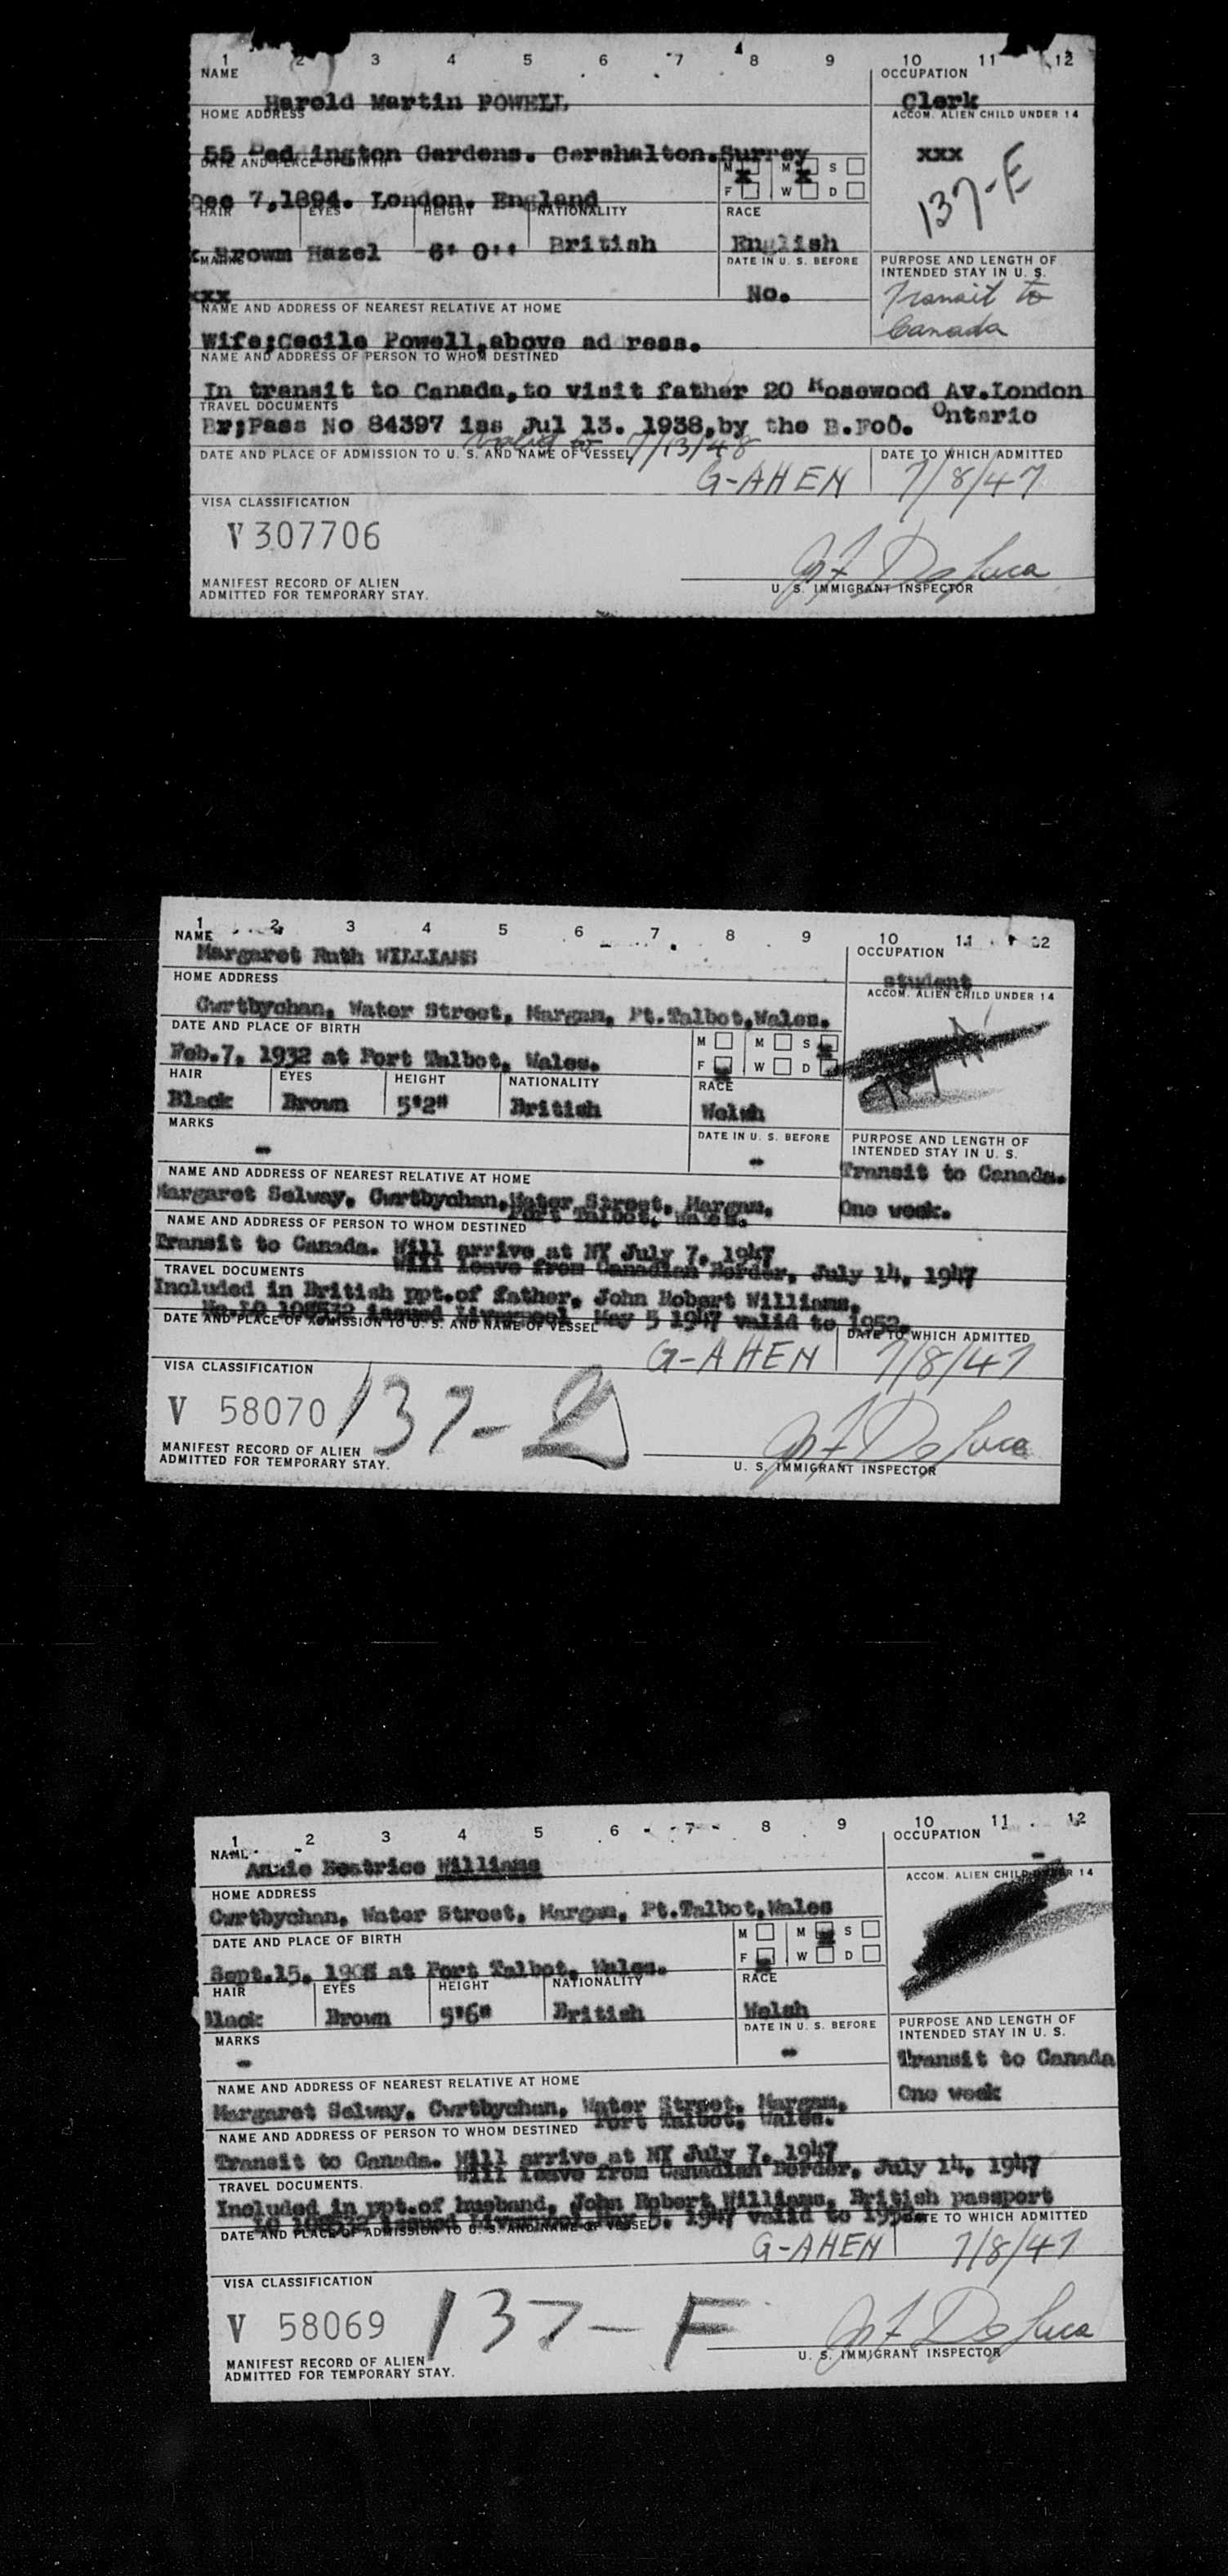 1 2 3 4 5 6 7 8 9 10 11 12
NAME OCCUPATION
Harold Martin POWELL Clerk
HOME ADDRESS ACCOM. ALIEN CHILD UNDER 14
55 Pad ington Gardens. Carshalton.Surrey xxx
DATE AND PLACE OF BIRTH M M S
137-E
Dec 7,1894. London. England F W D
HAIR EYES HEIGHT NATIONALITY RACE
Brown Hazel 6' 0'' British English
MARKS DATE IN U. S. BEFORE PURPOSE AND LENGTH OF
INTENDED STAY IN U. S.
xxx No. Transit to
NAME AND ADDRESS OF NEAREST RELATIVE AT HOME
Canada
Wife;Cecile Powell,above ad ress.
NAME AND ADDRESS OF PERSON TO WHOM DESTINED
In transit to Canada,to visit father 20 Rosewood Av.London
TRAVEL DOCUMENTS Ontario
Br;Pass No 84397 iss Jul 13. 1938,by the B.Fo0.
valid to 7/13/48
DATE AND PLACE OF ADMISSION TO U. S. AND NAME OF VESSEL DATE TO WHICH ADMITTED
G-AHEN 7/8/47
VISA CLASSIFICATION
V 307706
MANIFEST RECORD OF ALIEN
ADMITTED FOR TEMPORARY STAY. U. S. IMMIGRANT INSPECTOR
1 2 3 4 5 6 7 8 9 10 11 12
NAME OCCUPATION
Margaret Ruth WILLIAMS student
HOME ADDRESS ACCOM. ALIEN CHILD UNDER 14
Cwrtbychan, Water Street, Margam, Pt.Talbot,Wales.
DATE AND PLACE OF BIRTH M M S
Feb.7, 1932 at Port Talbot, Wales. F W D
HAIR EYES HEIGHT NATIONALITY RACE
Black Brown 5'2" British Welsh
MARKS DATE IN U. S. BEFORE PURPOSE AND LENGTH OF
INTENDED STAY IN U. S.
- - Transit to Canada.
NAME AND ADDRESS OF NEAREST RELATIVE AT HOME
Margaret Selway, Cwrtbychan,Water Street, Margam, One week.
Port Talbot, Wales.
NAME AND ADDRESS OF PERSON TO WHOM DESTINED
Transit to Canada. Will arrive at NY July 7, 1947
Will leave from Canadian Border, July 14, 1947
TRAVEL DOCUMENTS
Included in British ppt.of father, John Robert Williams,
issued Liverpool May 5 1947 valid to 1952.
DATE AND PLACE OF ADMISSION TO U. S. AND NAME OF VESSEL DATE TO WHICH ADMITTED
G-AHEN 7/8/47
VISA CLASSIFICATION
V 58070 137-D
MANIFEST RECORD OF ALIEN
ADMITTED FOR TEMPORARY STAY. U. S. IMMIGRANT INSPECTOR
1 2 3 4 5 6 7 8 9 10 11 12
NAME OCCUPATION
Annie Beatrice Williams -
HOME ADDRESS ACCOM. ALIEN CHILD UNDER 14
Cwrtbychan, Water Street, Margam, Pt.Talbot,Wales
DATE AND PLACE OF BIRTH M M S
Sept.15, at Port Talbot, Wales. F W D
HAIR EYES HEIGHT NATIONALITY RACE
Black Brown 5'6" British Welsh
MARKS DATE IN U. S. BEFORE PURPOSE AND LENGTH OF
INTENDED STAY IN U. S.
- - Transit to Canada
NAME AND ADDRESS OF NEAREST RELATIVE AT HOME One week
Margaret Selway, Cwrtbychan, Water Street, Margam,
Port Talbot, Wales.
NAME AND ADDRESS OF PERSON TO WHOM DESTINED
Transit to Canada. Will arrive at NY July 7, 1947
Will leave from Canadian Border, July 14, 1947
TRAVEL DOCUMENTS.
Included in ppt.of husband, John Robert Williams, British passport
issued Liverpool May 5, 1947 valid to 1952.
DATE AND PLACE OF ADMISSION TO U. S. AND NAME OF VESSEL DATE TO WHICH ADMITTED
G-AHEN 7/8/47
VISA CLASSIFICATION
V 58069 137-F
MANIFEST RECORD OF ALIEN
ADMITTED FOR TEMPORARY STAY. U. S. IMMIGRANT INSPECTOR